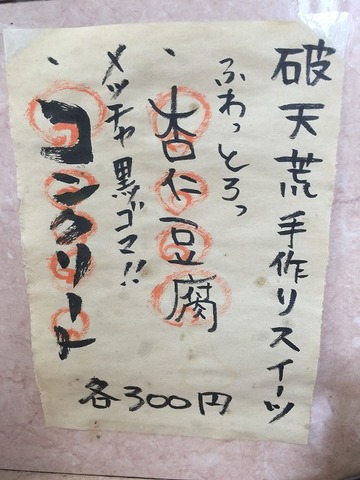 破天荒手作りスイーツ
ふわっとろっ
・杏仁豆腐
メッチャ黒ゴマ!!
・コンクリート
各300円